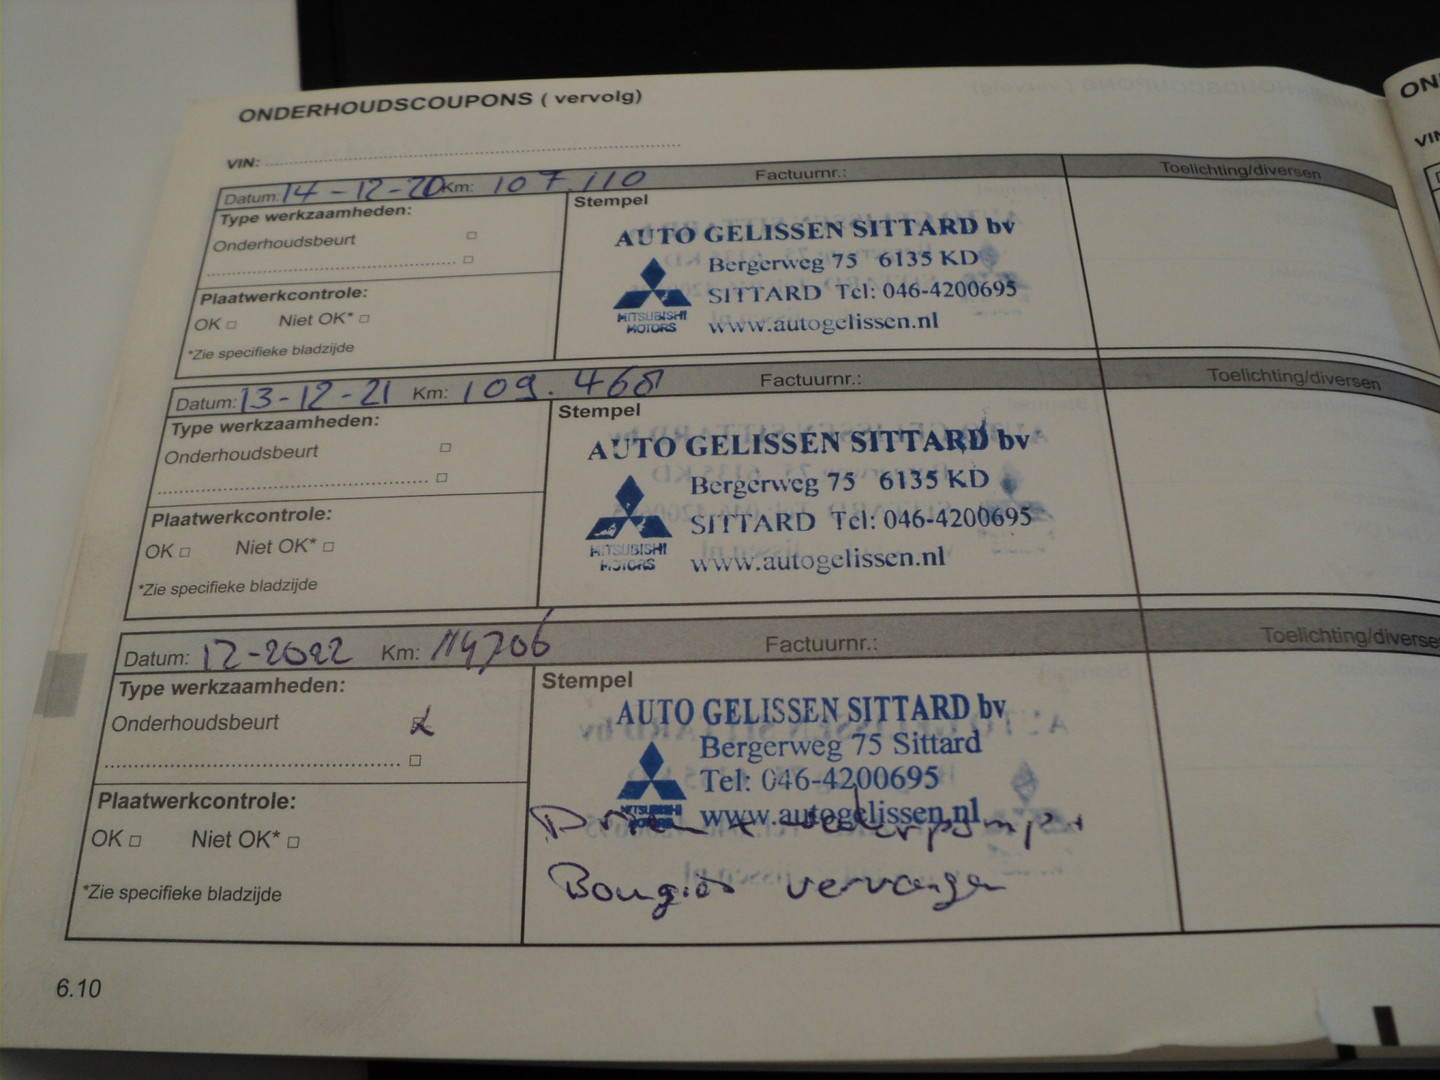 ONDERHOUDSCOUPONS ( vervolg)
ON
VIN:
VIN
Datum: 14-12-20 Km: 107.110 Factuurnr.: Toelichting/diversen
Type werkzaamheden:
Stempel
Onderhoudsbeurt
AUTO GELISSEN SITTARD bv
Bergerweg 75 6135 KD
SITTARD Tel: 046-4200695
www.autogelissen.nl
MITSUBISHI
MOTORS
Plaatwerkcontrole:
OK Niet OK*
*Zie specifieke bladzijde
Datum: 13-12-21 Km: 109.468 Factuurnr.: Toelichting/diversen
Type werkzaamheden:
Stempel
Onderhoudsbeurt
AUTO GELISSEN SITTARD bv
Bergerweg 75 6135 KD
SITTARD Tel: 046-4200695
www.autogelissen.nl
MITSUBISHI
MOTORS
Plaatwerkcontrole:
OK Niet OK*
*Zie specifieke bladzijde
Datum: 12-2022 Km: 114706 Factuurnr.: Toelichting/diverse
Type werkzaamheden:
Stempel
Onderhoudsbeurt
AUTO GELISSEN SITTARD bv
Bergerweg 75 Sittard
Tel: 046-4200695
www.autogelissen.nl
MITSUBISHI
MOTORS
waterpomp +
Bougies vervangen
Plaatwerkcontrole:
OK Niet OK*
*Zie specifieke bladzijde
6.10